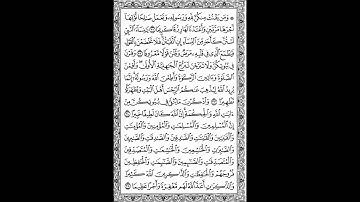 ۞ وَمَن يَقْنُتْ مِنكُنَّ لِلَّهِ وَرَسُولِهِۦ وَتَعْمَلْ صَٰلِحًا نُّؤْتِهَآ
أَجْرَهَا مَرَّتَيْنِ وَأَعْتَدْنَا لَهَا رِزْقًا كَرِيمًا ٣١ يَٰنِسَآءَ ٱلنَّبِيِّ
لَسْتُنَّ كَأَحَدٍ مِّنَ ٱلنِّسَآءِ إِنِ ٱتَّقَيْتُنَّ فَلَا تَخْضَعْنَ بِٱلْقَوْلِ
فَيَطْمَعَ ٱلَّذِي فِي قَلْبِهِۦ مَرَضٌ وَقُلْنَ قَوْلًا مَّعْرُوفًا ٣٢ وَقَرْنَ
فِي بُيُوتِكُنَّ وَلَا تَبَرَّجْنَ تَبَرُّجَ ٱلْجَٰهِلِيَّةِ ٱلْأُولَىٰ وَأَقِمْنَ
ٱلصَّلَوٰةَ وَءَاتِينَ ٱلزَّكَوٰةَ وَأَطِعْنَ ٱللَّهَ وَرَسُولَهُۥٓ إِنَّمَا
يُرِيدُ ٱللَّهُ لِيُذْهِبَ عَنكُمُ ٱلرِّجْسَ أَهْلَ ٱلْبَيْتِ وَيُطَهِّرَكُمْ
تَطْهِيرًا ٣٣ وَٱذْكُرْنَ مَا يُتْلَىٰ فِي بُيُوتِكُنَّ مِنْ
ءَايَٰتِ ٱللَّهِ وَٱلْحِكْمَةِ إِنَّ ٱللَّهَ كَانَ لَطِيفًا خَبِيرًا ٣٤
إِنَّ ٱلْمُسْلِمِينَ وَٱلْمُسْلِمَٰتِ وَٱلْمُؤْمِنِينَ وَٱلْمُؤْمِنَٰتِ
وَٱلْقَٰنِتِينَ وَٱلْقَٰنِتَٰتِ وَٱلصَّٰدِقِينَ وَٱلصَّٰدِقَٰتِ وَٱلصَّٰبِرِينَ
وَٱلصَّٰبِرَٰتِ وَٱلْخَٰشِعِينَ وَٱلْخَٰشِعَٰتِ وَٱلْمُتَصَدِّقِينَ
وَٱلْمُتَصَدِّقَٰتِ وَٱلصَّٰٓئِمِينَ وَٱلصَّٰٓئِمَٰتِ وَٱلْحَٰفِظِينَ
فُرُوجَهُمْ وَٱلْحَٰفِظَٰتِ وَٱلذَّٰكِرِينَ ٱللَّهَ كَثِيرًا
وَٱلذَّٰكِرَٰتِ أَعَدَّ ٱللَّهُ لَهُم مَّغْفِرَةً وَأَجْرًا عَظِيمًا ٣٥